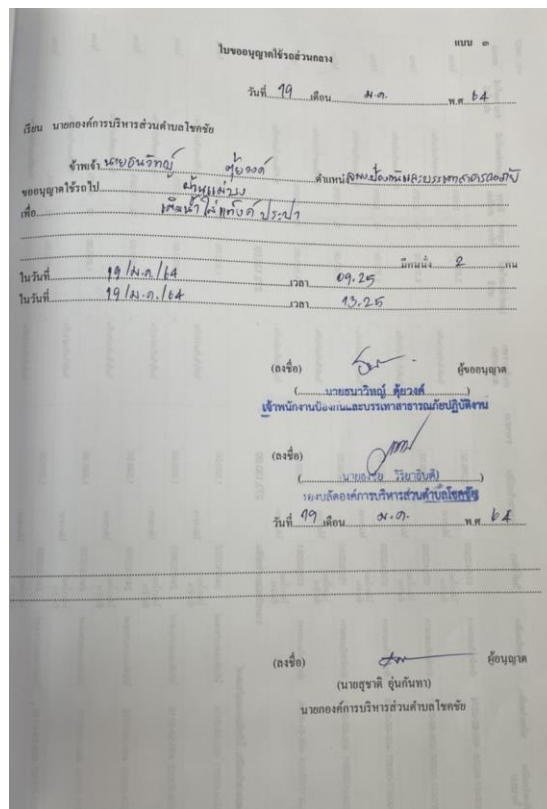 แบบ ๓
ใบขออนุญาตใช้รถส่วนกลาง
วันที่ 19 เดือน ม.ค. พ.ศ 64
เรียน นายกองค์การบริหารส่วนตำบลโชคชัย
ข้าพเจ้า นายธนาวิทญ์ ตุ้ยวงค์ ตำแหน่ง จพง.ป้องกันและบรรเทาสาธารณภัย
ขออนุญาตใช้รถไป บ้านแม่บง
เพื่อ เติมน้ำใส่แท้งค์ ประปา
มีคนนั่ง 2 คน
ในวันที่ 19/ม.ค./64 เวลา 09.25
ในวันที่ 19/ม.ค./64 เวลา 13.25
(ลงชื่อ) ผู้ขออนุญาต
(นายธนาวิทญ์ ตุ้ยวงค์)
เจ้าพนักงานป้องกันและบรรเทาสาธารณภัยปฏิบัติงาน
(ลงชื่อ)
(นายธงชัย วิริยาอินต๊ะ)
รองปลัดองค์การบริหารส่วนตำบลโชคชัย
วันที่ 19 เดือน ม.ค. พ.ศ 64
(ลงชื่อ) ผู้อนุญาต
(นายสุชาติ อุ่นกันทา)
นายกองค์การบริหารส่วนตำบลโชคชัย